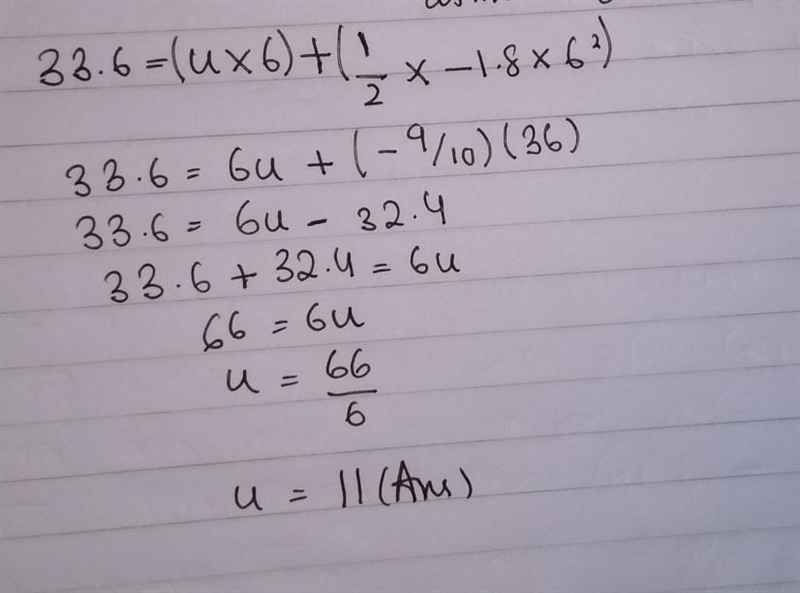 33.6 = (u × 6) + (1/2 × -1.8 × 6²)
33.6 = 6u + (-9/10)(36)
33.6 = 6u - 32.4
33.6 + 32.4 = 6u
66 = 6u
u = 66/6
u = 11 (Ans)